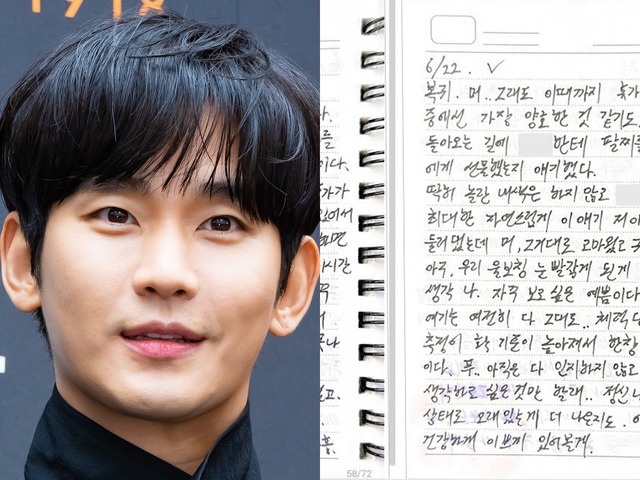 1918
를
이다.
가가
에서
하면
시간
6/22. ✓
복귀. 머.. 그래도 이때까지 휴가
중에선 가장 양호한 것 같기도.
돌아오는 길에 한테 팔찌를
에게 선물했는지 얘기했다.
딱히 놀란 내색은 하지 않고
최대한 자연스럽게 이 얘기 저 이
들려줬는데 머, 그거대로 고마웠고
아주, 우리 울보쨩 눈 빨갛게 된 게
생각 나. 자꾸 보고 싶은 예쁨이다
여기는 여전히 다 그대로.. 체력 단
측정이 학 기준이 높아져서 한창
이다. 푸.. 아직은 다 인지하지 않고
생각하고 싶은 것만 할래.. 정신 나
상태로 오래 있는 게 더 나은지도.
건강하게 이쁘게 있어볼게.
58/72